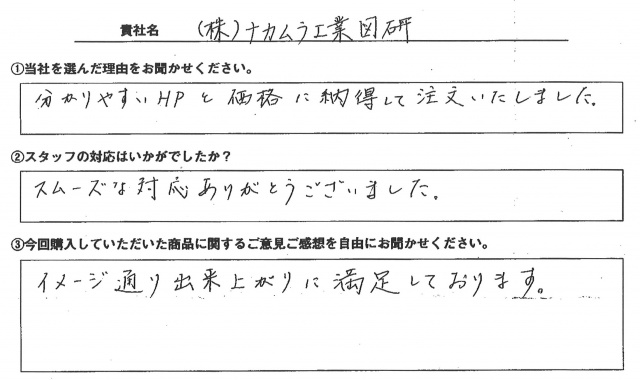 貴社名 (株)ナカムラ工業図研
①当社を選んだ理由をお聞かせください。
分かりやすいHPと価格に納得して注文いたしました。
②スタッフの対応はいかがでしたか？
スムーズな対応ありがとうございました。
③今回購入していただいた商品に関するご意見ご感想を自由にお聞かせください。
イメージ通り出来上がりに満足しております。